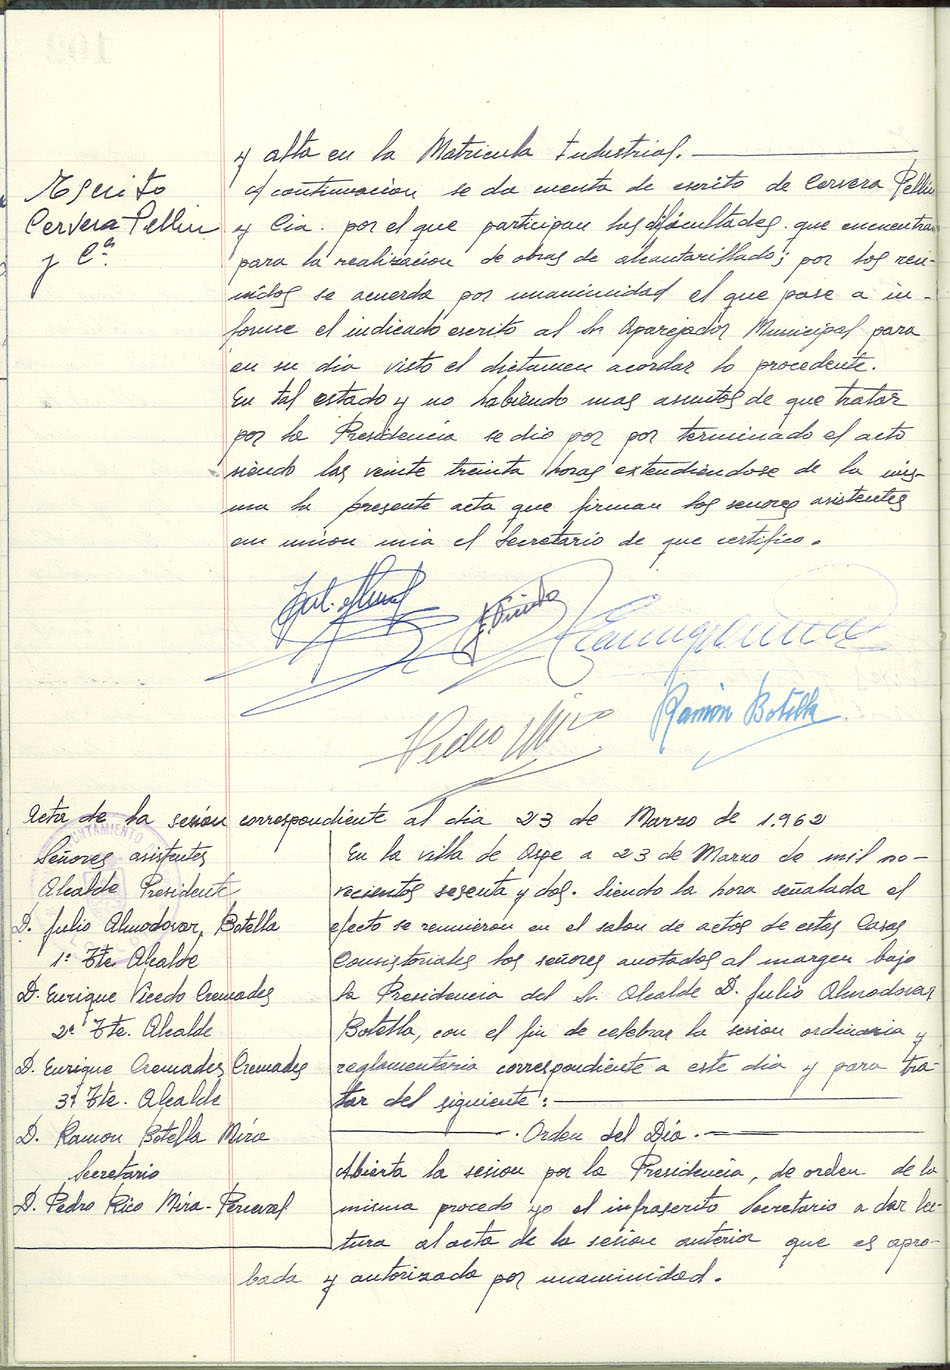 y alta en la Matricula Industrial.
Escrito
Cervera Pellin
y Cª.
A continuación se da cuenta de escrito de Cervera Pellin
y Cia. por el que participan las dificultades que encuentran
para la realización de obras de alcantarillado; por los reu-
nidos se acuerda por unanimidad el que pase a in-
forme el indicado escrito al Sr. Aparejador Municipal para
en su dia visto el dictamen acordar lo procedente.
En tal estado y no habiendo mas asuntos de que tratar
por la Presidencia se dio por por terminado el acto
siendo las veinte treinta horas extendiéndose de la mis-
ma la presente acta que firman los señores asistentes
en unión mia el Secretario de que certifico.
Ramón Botella
Pedro
Acta de la sesión correspondiente al dia 23 de Marzo de 1.962
Señores asistentes
Alcalde Presidente
D. Julio Almodovar, Botella
1º Tte Alcalde
D. Enrique Vicedo Cremades
2º Tte. Alcalde
D. Enrique Cremades Cremades
3º Tte. Alcalde
D. Ramon Botella Mira
Secretario
D. Pedro Rico Mira-Perceval
En la villa de Aspe a 23 de Marzo de mil no-
vecientos sesenta y dos. Siendo la hora señalada el
efecto se reunieron en el salon de actos de estas Casas
Consistoriales los señores anotados al margen bajo
la Presidencia del Sr. Alcalde D. Julio Almodovar
Botella, con el fin de celebrar la sesion ordinaria y
reglamentaria correspondiente a este dia y para tra-
tar del siguiente:
Orden del Dia.
Abierta la sesion por la Presidencia, de orden de la
misma procedo yo el infrascrito Secretario a dar lec-
tura al acta de la sesion anterior que es apro-
bada y autorizada por unanimidad.